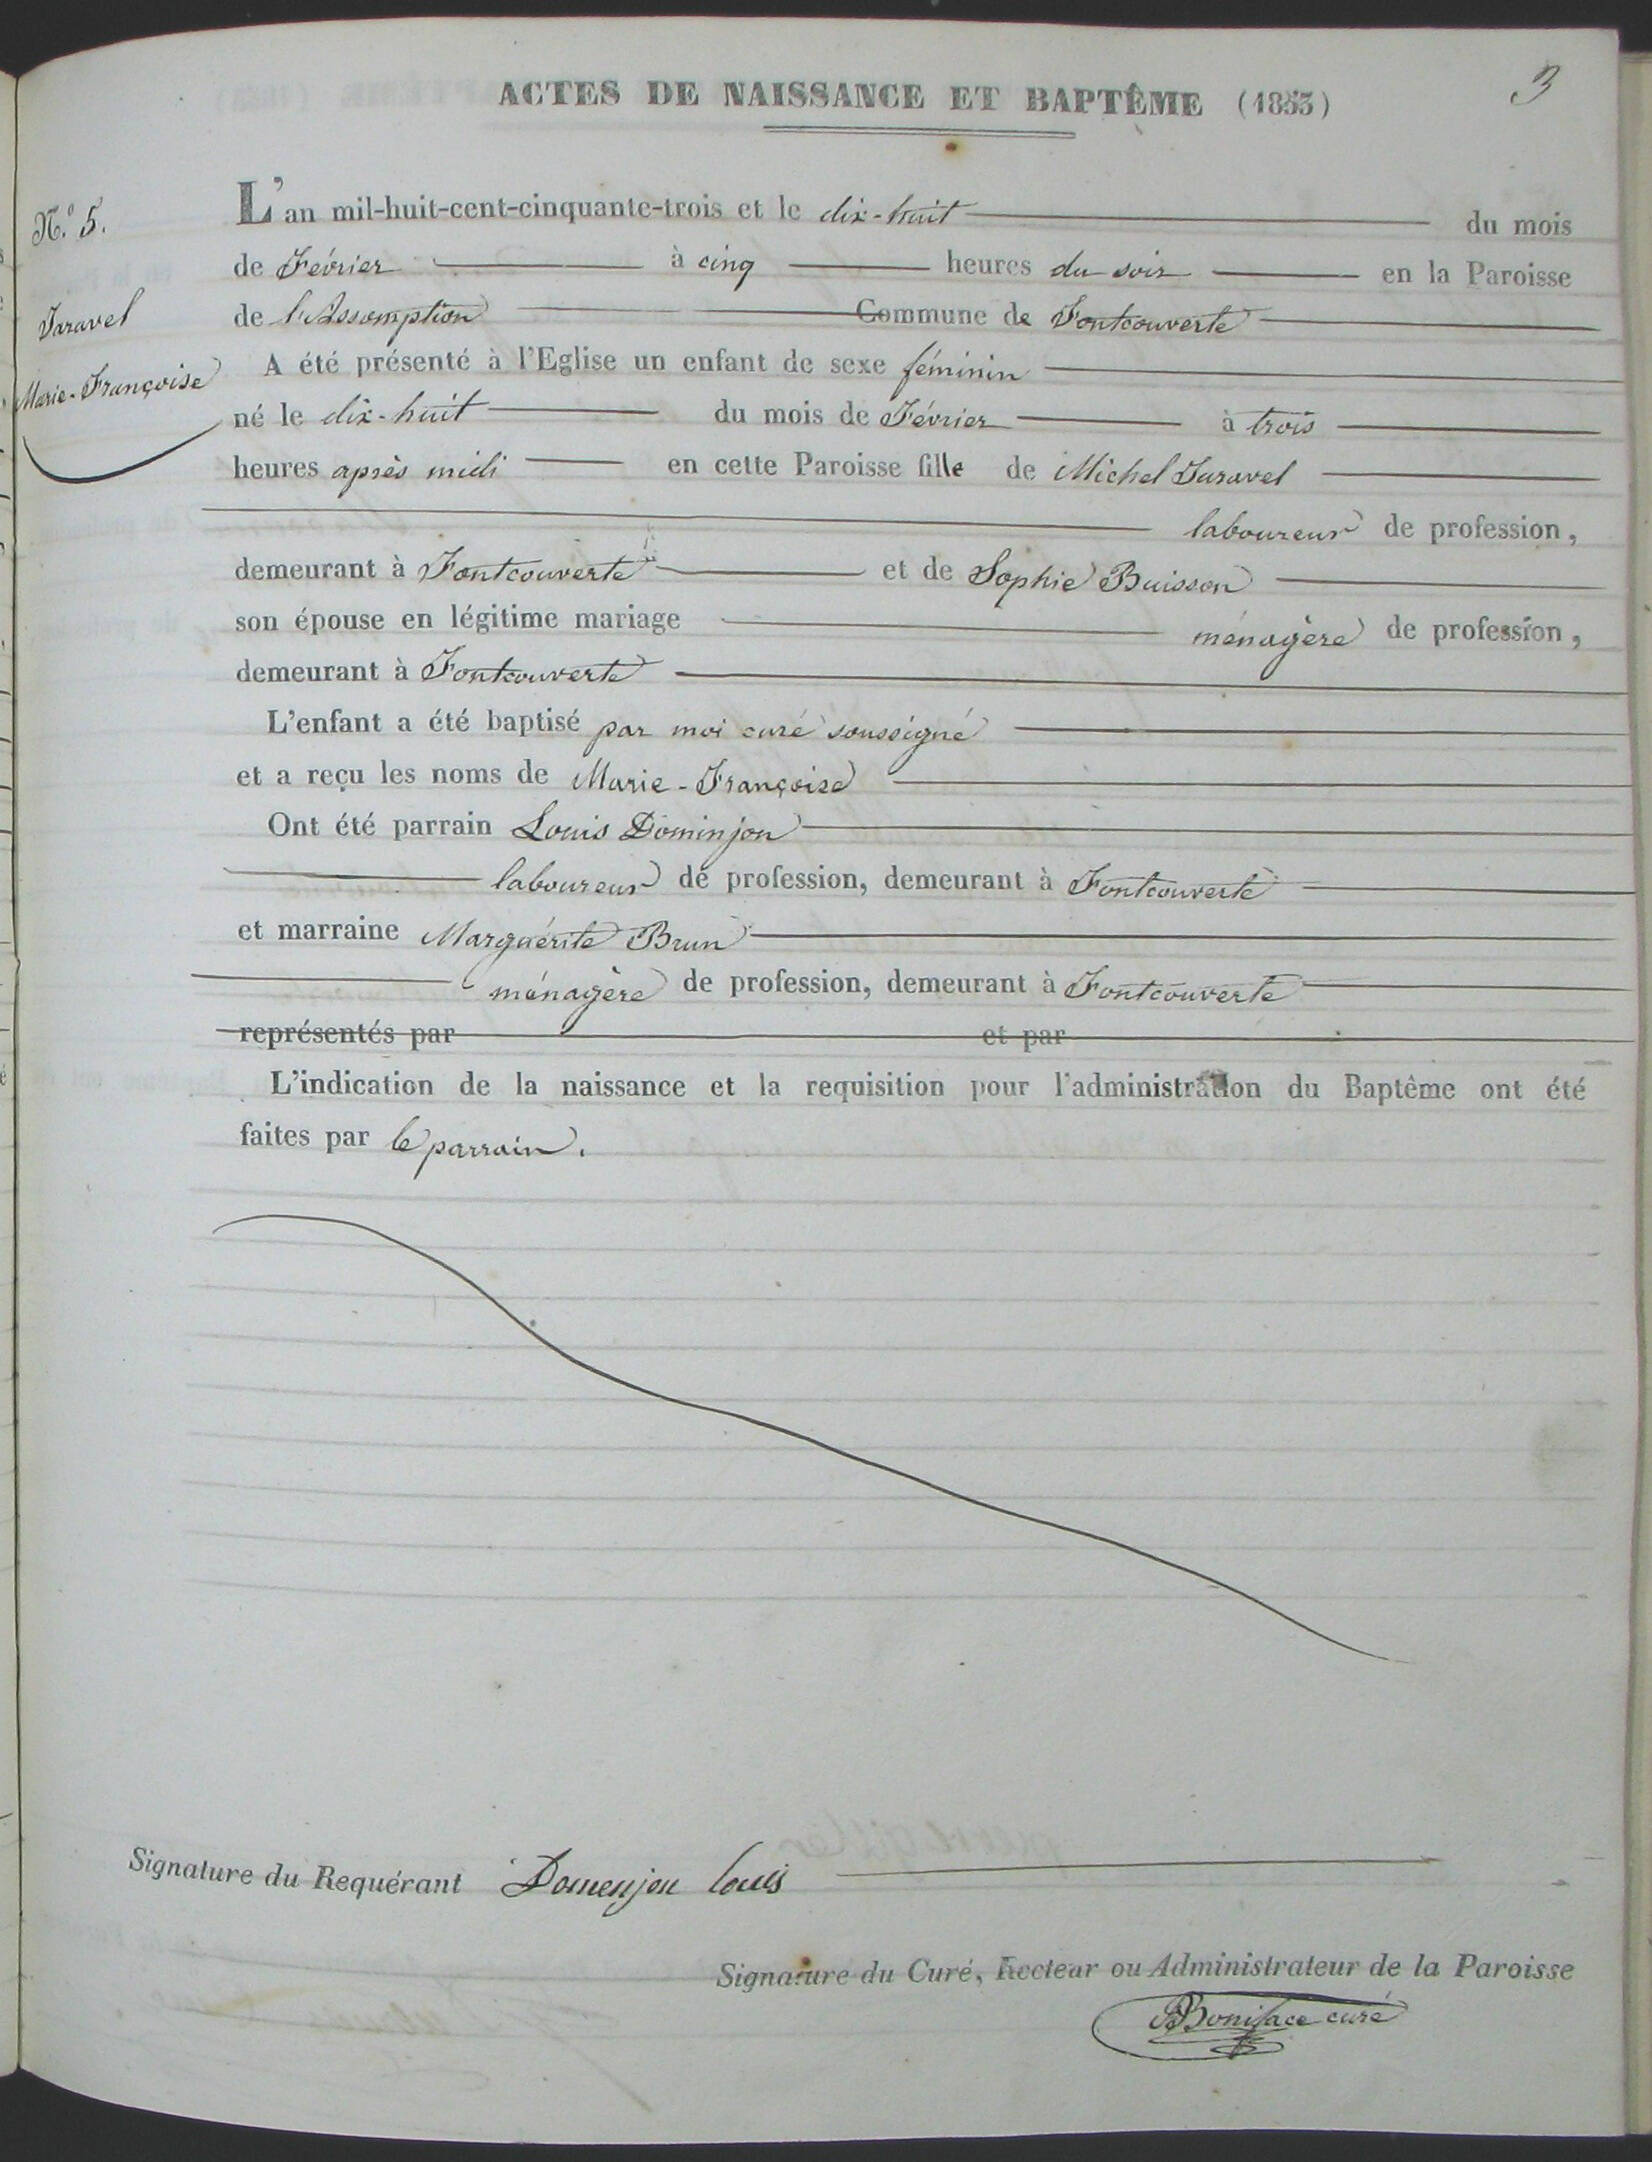 ACTES DE NAISSANCE ET BAPTÊME (1853)
3
N.º 5.
Taravel
Marie-Françoise
L'an mil-huit-cent-cinquante-trois et le dix-huit du mois
de Février à cinq heures du soir en la Paroisse
de l'Assomption Commune de Fontcouverte
A été présenté à l'Eglise un enfant de sexe féminin
né le dix-huit du mois de Février à trois
heures après midi en cette Paroisse fille de Michel Taravel
laboureur de profession,
demeurant à Fontcouverte et de Sophie Buisson
son épouse en légitime mariage ménagère de profession,
demeurant à Fontcouverte
L'enfant a été baptisé par moi curé soussigné
et a reçu les noms de Marie-Françoise
Ont été parrain Louis Dominjon
laboureur de profession, demeurant à Fontcouverte
et marraine Marguérite Brun
ménagère de profession, demeurant à Fontcouverte
représentés par et par
L'indication de la naissance et la requisition pour l'administration du Baptême ont été
faites par le parrain.
Signature du Requérant Domenjon louis
Signature du Curé, Recteur ou Administrateur de la Paroisse
Boniface curé